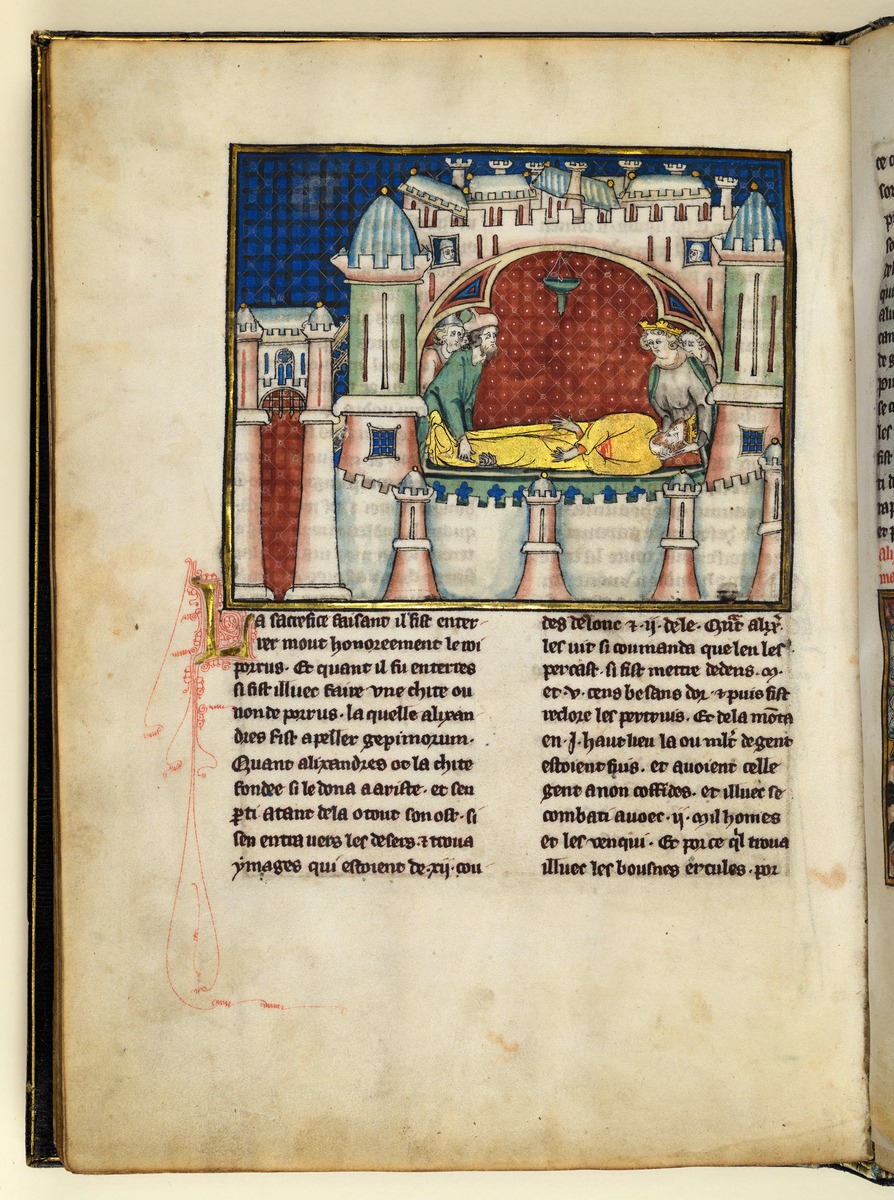 La sacrefice faisant il fist enter-
rer mout honoreement le roi
porrus. Et quant il fu enterres
si fist illuec faire vne chite ou
non de porrus. la quelle alixan
dres fist apeller gepimorum.
Quant alixandres ot la chite
fondee si le dona a ariste. et sen
pti atant dela o tout son ost. si
sen entra uers les desers. ⁊ troua
ymages qui estoient de .xij. cou
des de lonc ⁊ .ij. de le. Qnt alix.
les uit si coumanda que len les
percast. si fist metre dedens .M.
et .v. cens besans dor. ⁊ puis fist
reclore les pertrius. Et dela mōta
en .j. haut lieu la ou mlt de gent
estoient fuis. et auoient celle
gent a non coffides. et illuec se
combati auoec .ij. mil homes
et les venqui. Et por ce ql troua
illuec les bousnes ercules. por